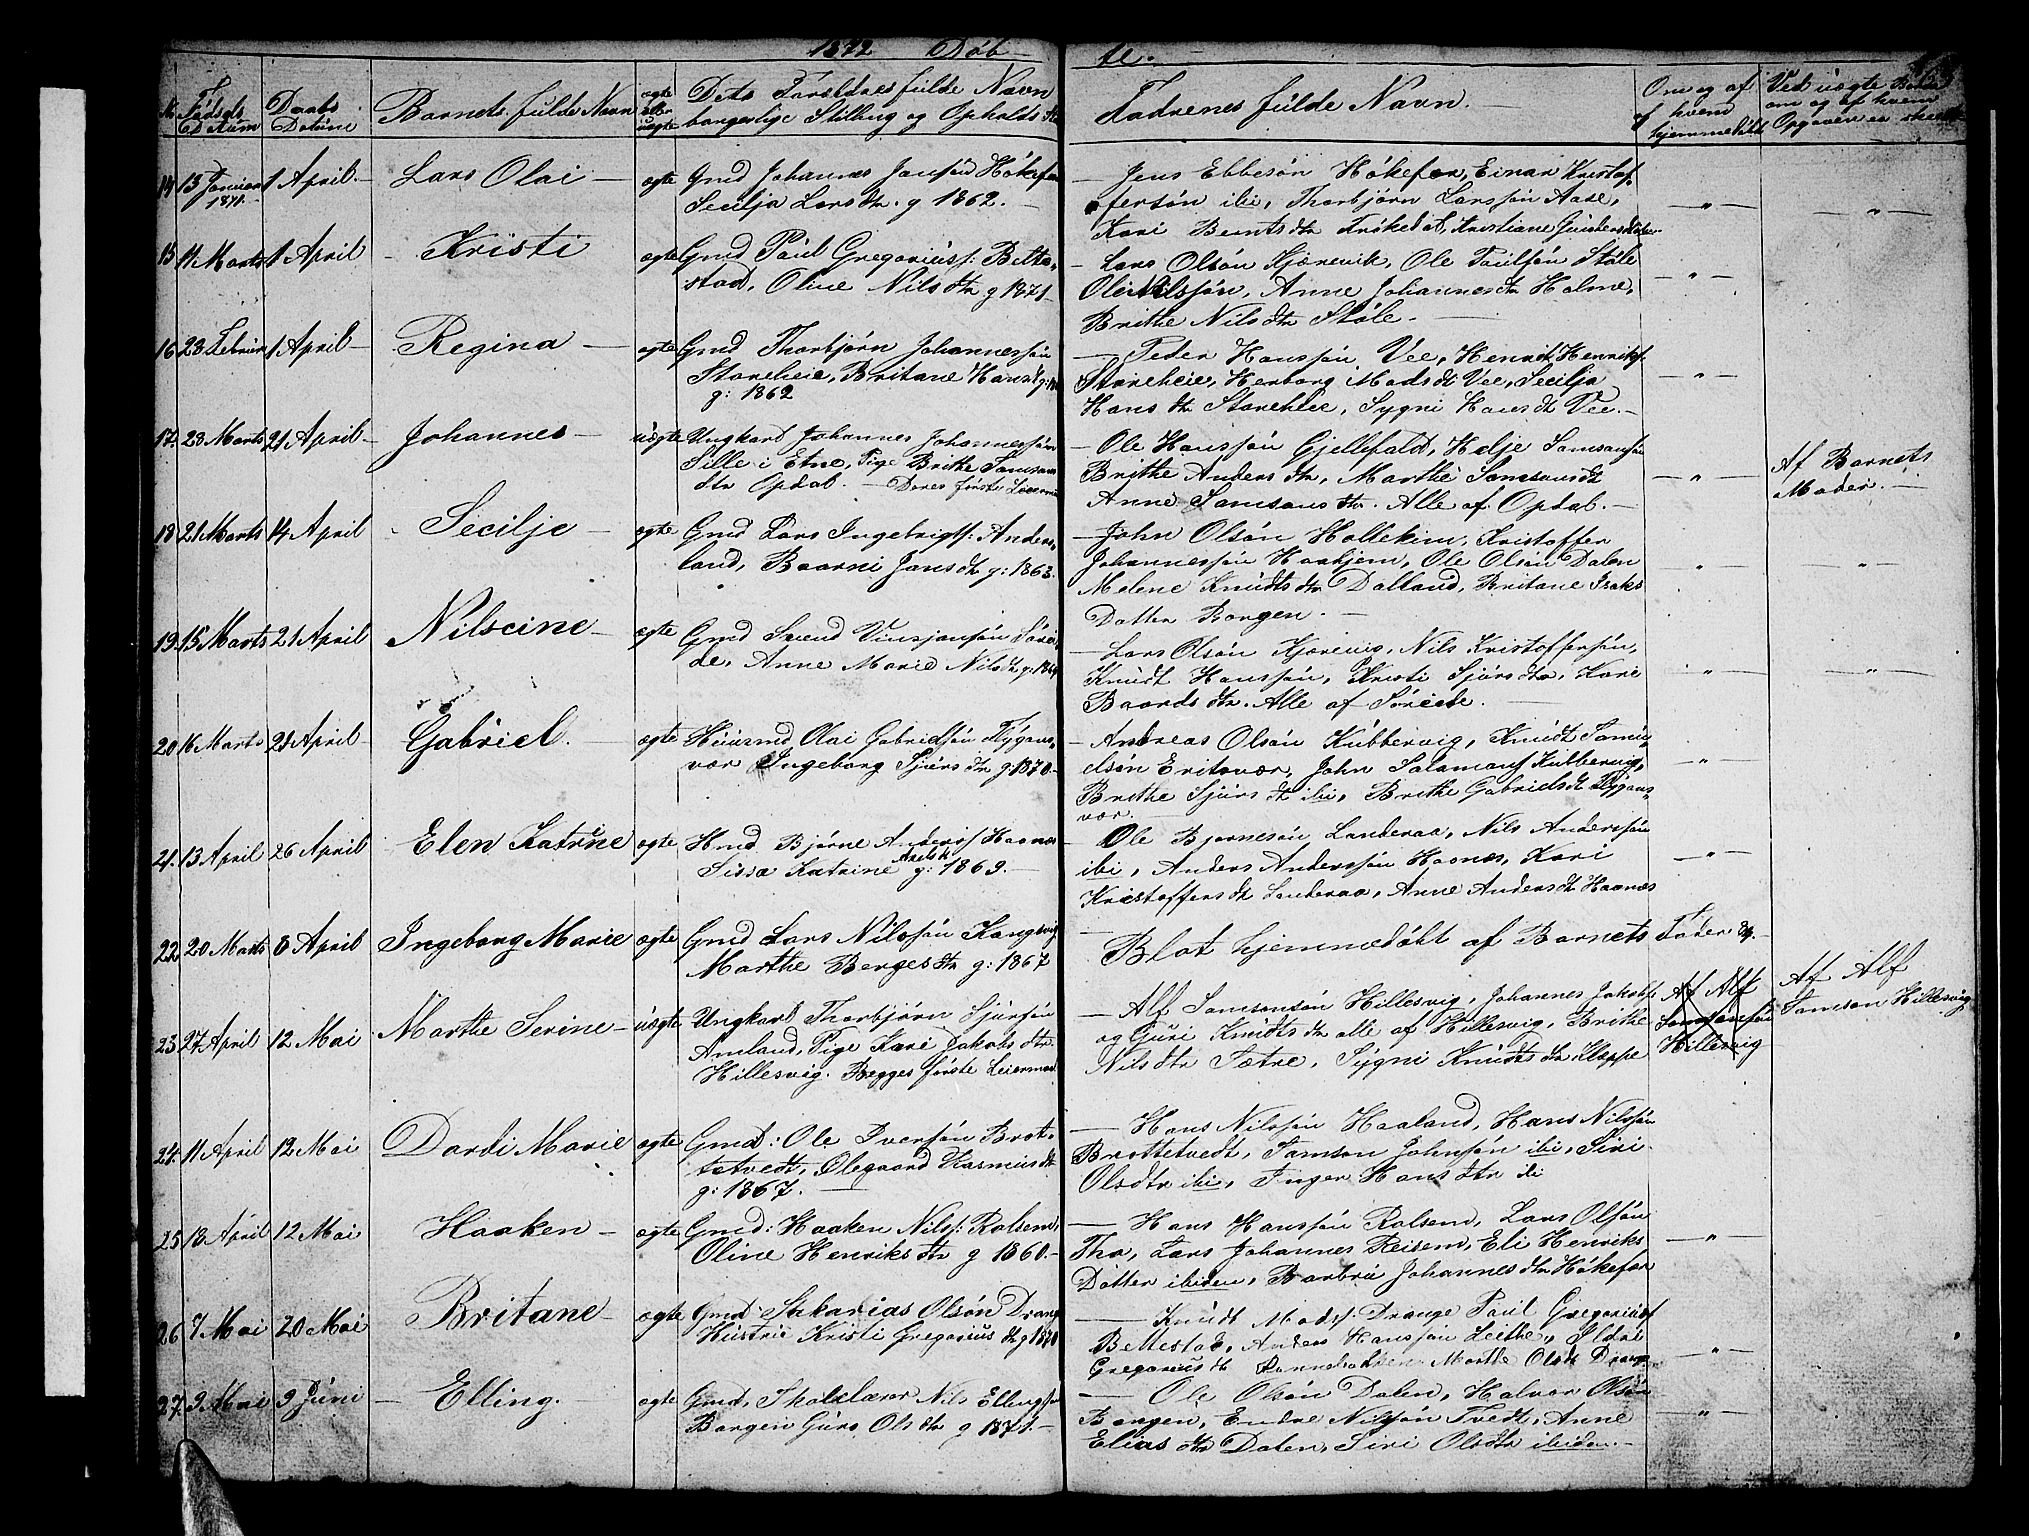 1872 Döb- te.
No Födsels Datum
Daabs Datum
Barnets fulde Navn
ægte eller uægte
Dets Forældres fulde Navn
borgerlige Stilling og Opholds
Fadrenes fulde Navn.
Om og af hvem hjemmedöbt
Ved uægte
om og af hvem
Opgaven er skeet
14 13 Januar 1871. 1 April. Lars Olai ægte Gmd Johannes Jansön Hökefær
Secilja Larsdtr. g 1862.
Jens Ebbesön Hökefær, Einar Kristof-
fersön ibi, Thorbjörn Larssön Aase,
Kari Berntsdtr Frökedal, Kristiane Gundersdatter
15 11 Marts 1 April Kristi ægte Gmd Paul Gregoriusf: Bette-
stad, Oline Nilsdtr g 1871
Lars Olsön Kjærevik, Ole Paulsön Stöle
Ole Nilssön, Anne Johannesdtr Holme,
Brithe Nilsdtr Stöle.
16 23 Februar 1 April Regina ægte Gmd Thorbjörn Johannessön
Storeheie, Britane Hansdt
g: 1862
Peder Hanssön Vee, Henrik Henriksf.
Storeheie, Herborg Madsdt Vee, Secilja
Hansdtr Storeheie, Sygni Hansdt Vee.
17. 23 Marts 21 April Johannes uægte Ungkarl Johannes Johannessön
Sille i Etne, Pige Brithe Samsons
dtr Opdal. Deres förste Leiermaal
Ole Hanssön Gjellefald, Helje Samsonsön
Brithe Andersdtr, Marthe Samsonsdt
Anne Samsonsdtr. Alle af Opdal.
Af Barnets
Moder.
18 21 Marts 14 April Secilje ægte Gmd Lars Ingebrigtf: Anders-
land, Baarni Jansdt g: 1863.
John Olsön Holtekim, Kristoffer
Johannessön Haahjem, Ole Olsön Dalen
Melene Knudtsdtr Dalland, Britane Isaks
Datter Borgen.
19. 15 Marts 21 April Nilseine ægte Gmd Svend Vinsjansön Sörei-
de, Anne Marie Nilsdt g: 1864
Lars Olsön Kjærevig, Nils Kristoffersön,
Knudt Hanssön, Kristi Sjursdtr, Kari
Baardsdtr. Alle af Söreide.
20 16 Marts 21 April Gabriel. ægte Huusmd Olai Gabrielsön Flygans-
vær Ingeborg Sjursdtr g: 1870.
Andreas Olsön Kubbervig, Knudt Samu-
elsön Eritsvær, John Salamonf Kubbervig,
Brithe Sjursdt ibi, Brithe Gabrielsdt Flygans-
vær.
21. 13 April 26 April Elen Katrine ægte Hmd Bjørne Andersf Haanæs
Sissa Katrine Axelsd g: 1869.
Ole Bjornesön Landeraa, Nils Anderssön
ibi, Anders Anderssön Haanæs, Kari
Kristoffersdt Landeraa, Anne Andersdt Haanæs
22. 20 Marts 8 April Ingeborg Marie ægte Gmd Lars Nilssön Kongsvig
Marthe Bergesdtr g: 1867
Blot hjemmedöbt af Barnets Fader
23. 27 April 12 Mai Marthe Serine uægte Ungkarl Thorbjörn Sjursön
Amland, Pige Kari Jakobsdtr
Hillesvig. Begges förste Leiermaal
Alf Samsonsön Hillesvig, Johannes Jakobf
og Guri Knudtsdtr alle af Hillesvig, Brithe
Nilsdtr Sætre, Sygni Knudtsdtr Kleppe
Af Alf
Samsonsön
Hillesvig
Af Alf
Samson Hillesvig
24. 11 April 12 Mai Dordi Marie ægte Gmd: Ole Iversön Brot-
tetvedt, Ølegaard Rasmusdt
g: 1867.
Hans Nilssön Haaland, Hans Nilssön
Brottetvedt, Samson Johnsön ibi, Siri
Olsdtr ibi, Inger Hansdtr ibi
25 18 April 12 Mai Haaken ægte Gmd: Haaken Nilsf: Rolsem,
Oline Henriksdtr g 1860.
Hans Hanssön Rolsem, Lars Olsön
Tho, Lars Johannes Reisem, Eli Henriks
Datter ibiden, Barbru Johannesdtr Hökefær
26 7 Mai 20 Mai Britane ægte Gmd: Sakarias Olsön Drange
Hustrue Kristi Gregoriusdt g 1870
Knudt Madsf: Drange Paul Gregoriusf
Bettestad, Anders Hanssön Leithe, Sldri
Gregoriusdt Rennebakken Marthe Olsdt Drange
27. 9 Mai 9 Juni Elling. ægte Gmd, Skolelærer Nils Ellingsön
Borgen Guro Olsdtr g 1871.
Ole Olsön Dalen, Halvor Olsön
Borgen, Endre Nilssön Tvedt, Anne
Eliasdtr Dalen, Siri Olsdtr ibiden.